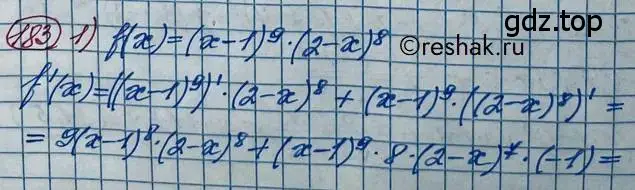 183 1) f(x)=(x-1)⁹·(2-x)⁸
гдз.top
©reshak.ru
f'(x)=((x-1)⁹)'·(2-x)⁸+(x-1)⁹·((2-x)⁸)'=
=9(x-1)⁸·(2-x)⁸+(x-1)⁹·8·(2-x)⁷·(-1)=